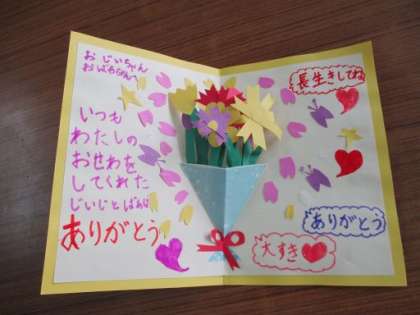 おじいちゃん
おばあちゃんへ
いつも
わたしの
おせわを
してくれた
じいじとばあば
ありがとう
長生きしてね
ありがとう
大すき